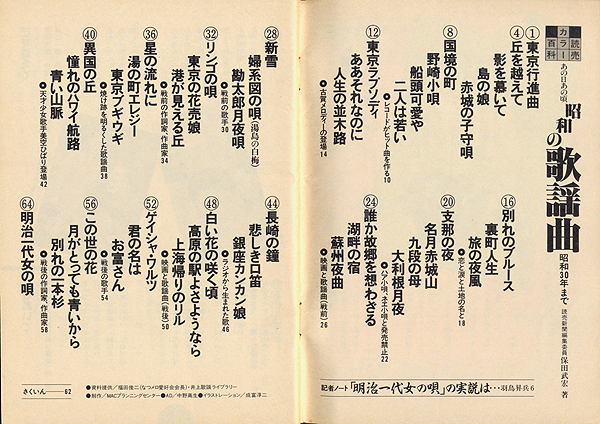 読売
カラー
百科
あの日あの頃
昭和の歌謡曲
昭和30年まで
読売新聞編集委員 保田武宏 著
①東京行進曲
④丘を越えて
影を慕いて
島の娘
赤城の子守唄
⑧国境の町
野崎小唄
船頭可愛や
二人は若い
●レコードがヒット曲を作る10
⑫東京ラプソディ
ああそれなのに
人生の並木路
●古賀メロディーの登場14
⑯別れのブルース
裏町人生
旅の夜風
●恋と涙と土地の名と18
⑳支那の夜
名月赤城山
九段の母
大利根月夜
●ハア小唄、ネエ小唄と発売禁止22
㉔誰か故郷を想わざる
湖畔の宿
蘇州夜曲
●映画と歌謡曲(戦前)26
記者ノート「明治一代女の唄」の実説は…羽鳥昇兵6
㉘新雪
婦系図の唄(湯島の白梅)
勘太郎月夜唄
●戦前の歌手30
㉜リンゴの唄
東京の花売娘
港が見える丘
●戦前の作詞家、作曲家34
㊱星の流れに
湯の町エレジー
東京ブギウギ
●焼け跡を明るくした歌謡曲38
㊵異国の丘
憧れのハワイ航路
青い山脈
●天才少女歌手美空ひばり登場42
㊹長崎の鐘
悲しき口笛
銀座カンカン娘
●ラジオから生まれた歌46
㊽白い花の咲く頃
高原の駅よさようなら
上海帰りのリル
●映画と歌謡曲(戦後)50
52ゲイシャ・ワルツ
君の名は
お富さん
●戦後の歌手54
56この世の花
月がとっても青いから
別れの一本杉
●戦後の作詞家、作曲家58
64明治一代女の唄
さくいん——62
●資料提供/福田俊二(なつメロ愛好会会長)・井上歌謡ライブラリー
●制作/MACプランニングセンター●AD/中野高生●イラストレーション/成富淳二